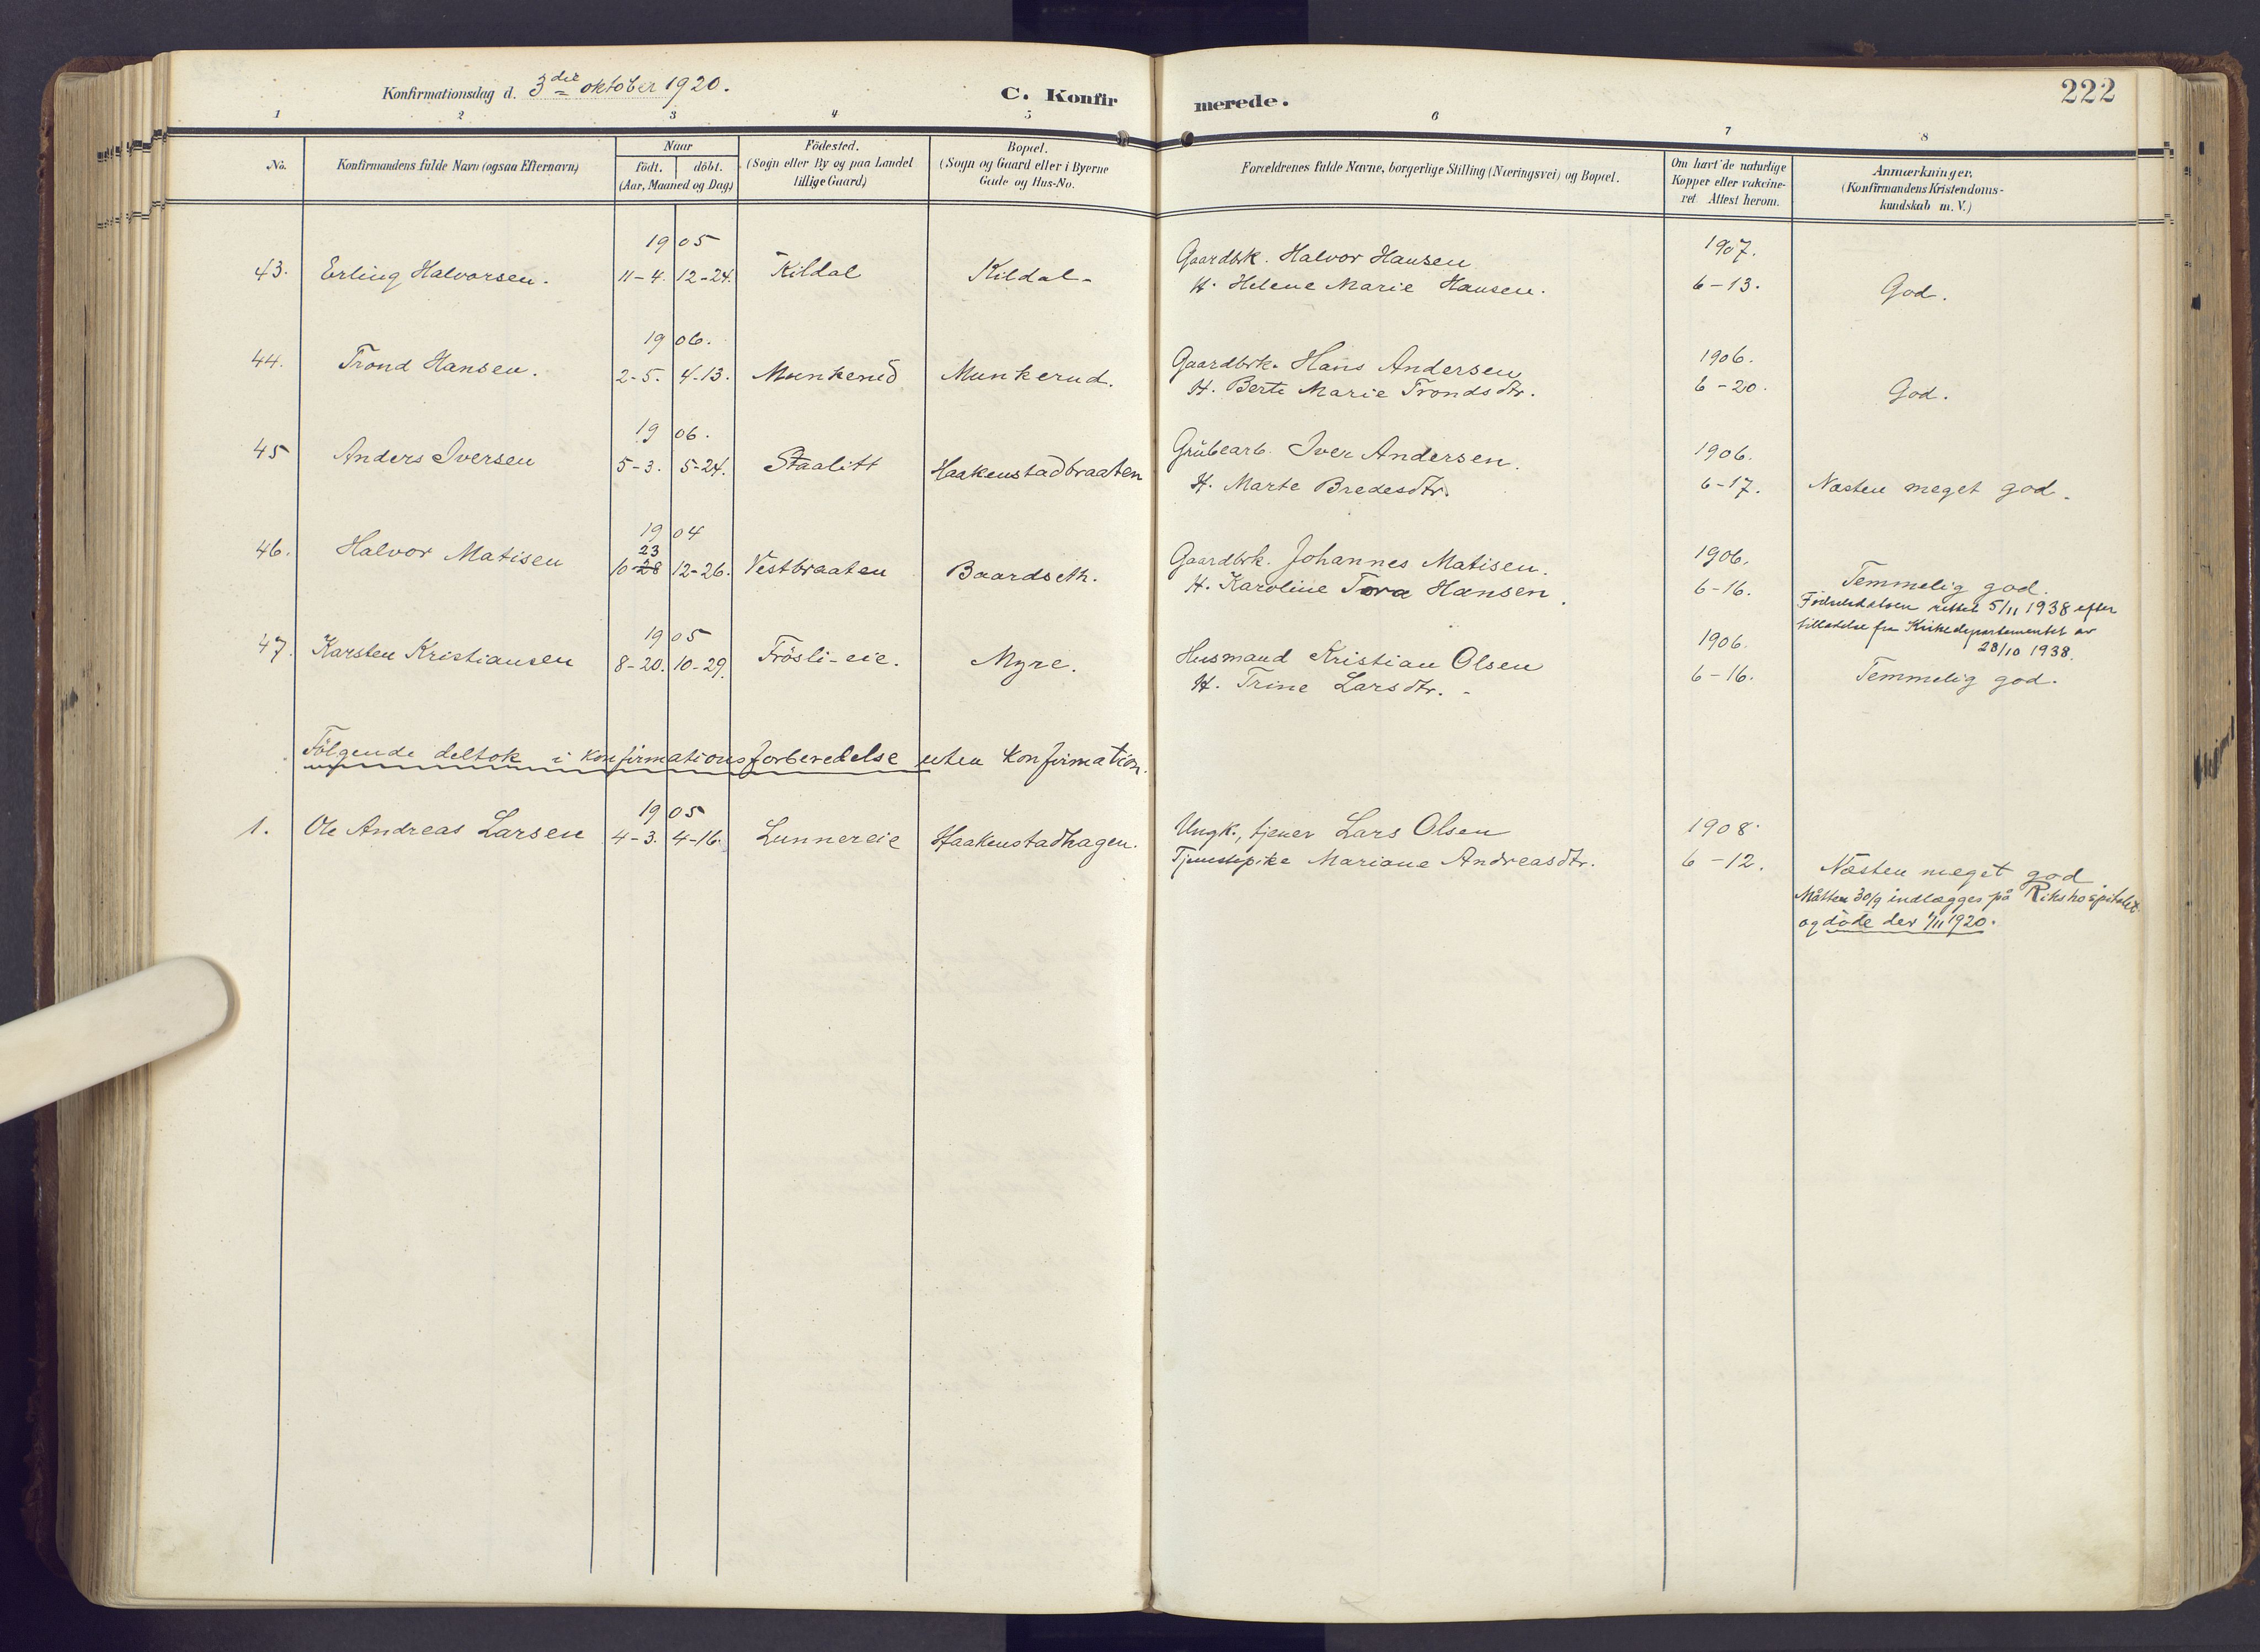 Konfirmationsdag d. 3die oktober 1920.
C. Konfirmerede.
222
1 2 3 4 5 6 7 8
No.
Konfirmandens fulde Navn (ogsaa Efternavn)
Naar
födt. döbt.
(Aar, Maaned og Dag)
Födested.
(Sogn eller By og paa Landet
tillige Gaard)
Bopæl.
(Sogn og Gaard eller i Byerne
Gade og Hus-No.
Forældrenes fulde Navne, borgerlige Stilling (Næringsvei) og Bopæl.
Om havt de naturlige
Kopper eller vakcine-
ret Attest herom.
Anmærkninger.
(Konfirmandens Kristendoms-
kundskab m. V.)
1905
43. Erling Halvorsen. 11-4. 12-24. Kildal Kildal-
Gaardbk. Halvor Hansen 1907.
H. Helene Marie Hansen. 6-13. God.
1906.
44. Trond Hansen. 2-5. 4-13. Munkerud Munkerud.
Gaardbrk. Hans Andersen 1906.
H. Berte Marie Trondsdtr. 6-20. God.
1906.
45 Anders Iversen 5-3. 5-24. Staalitt Haakenstadbraaten
Grubearb. Iver Andersen. 1906.
H. Marte Bredesdtr. 6-17. Næsten meget god.
1904
23
46. Halvor Matisen 10-28 12-26. Vestbraaten Baardseth.
Gaardbrk. Johannes Matisen. 1906.
H. Karoline Tora Hansen. 6-16. Temmelig god.
Fødselsdatoen rettet 5/11 1938 efter
tilladelse fra Kirkedepartementet av
28/10 1938.
1905
47. Karsten Kristiansen 8-20. 10-29. Frösli-eie. Myre.
Husmand Kristian Olsen 1906.
H. Trine Larsdtr. - 6-16. Temmelig god.
Fölgende deltok i konfirmationsforberedelse uten konfirmation.
1905
1. Ole Andreas Larsen 4-3. 4-16. Lunnereie Haakenstadhagen.
Ungk., tjener Lars Olsen 1908.
Tjenestepike Mariane Andreasdtr. 6-12. Næsten meget god
Måtte 30/9 indlægges på Rikshospitalet
og döde der 1/11 1920.